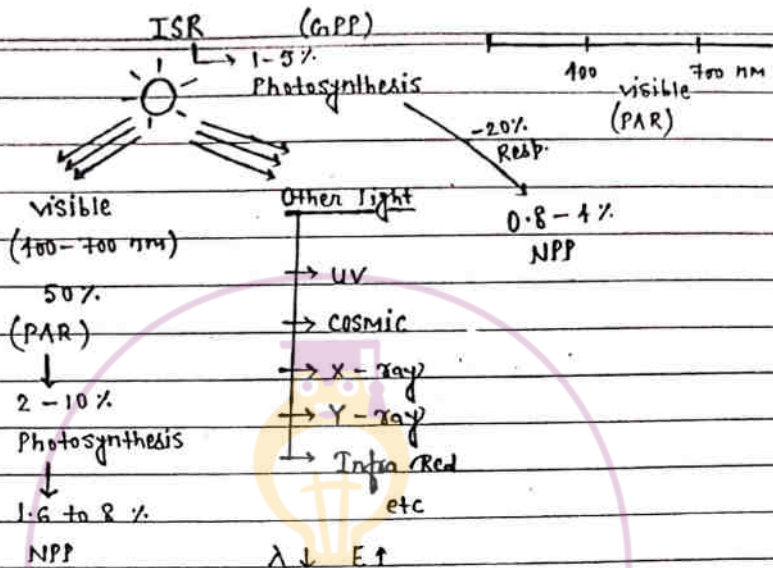 ISR (GPP)
→ 1-5%
Photosynthesis
400 700 nm
visible
(PAR)
-20%
Resp.
0.8-4%
NPP
visible
(400-700 nm)
50%
(PAR)
2-10%
Photosynthesis
1.6 to 8 %
NPP
Other light
→ UV
→ Cosmic
→ X-ray
→ Y-ray
→ Infra Red
etc
λ ↓ E ↑